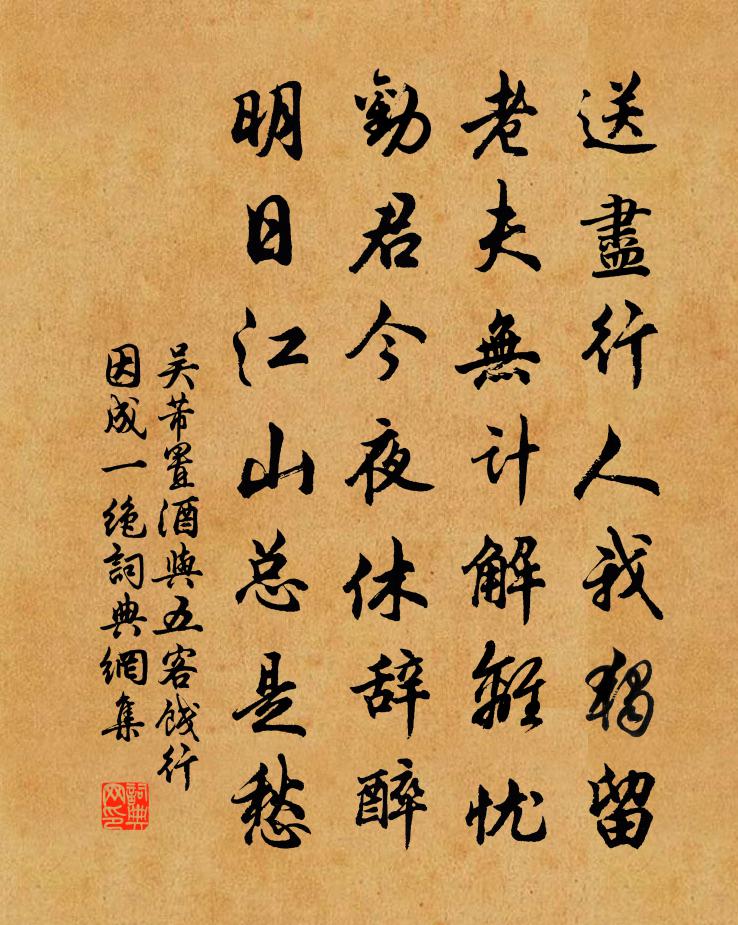 送盡行人我獨留
老夫無計解離忧
勸君今夜休辞醉
明日江山总是愁
吴芾置酒與五客餞行
因成一绝詞典網集
詞典
网印